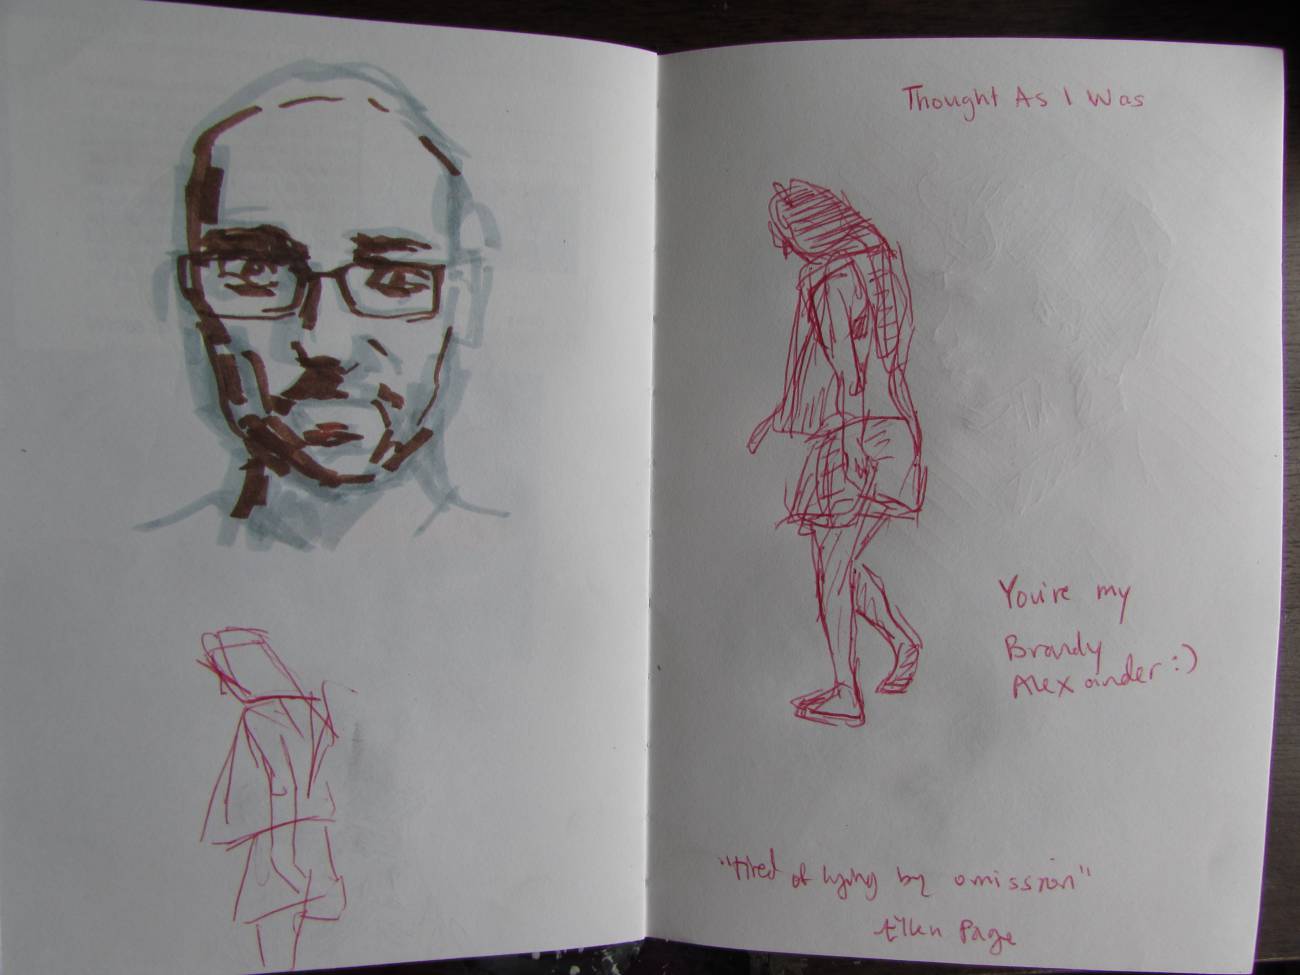 Thought As I Was
You're my
Brandy
Alexander :)
"tired of lying by omission"
Ellen Page